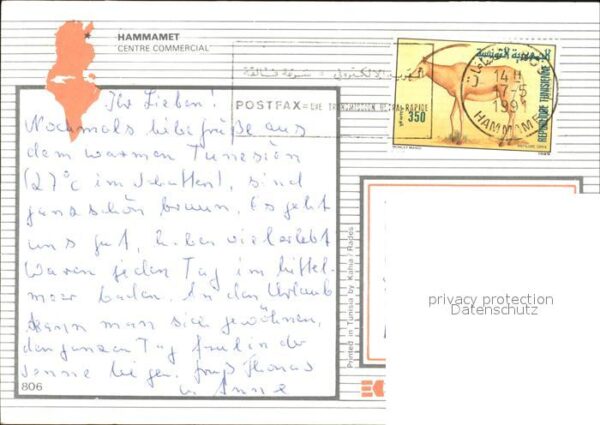 HAMMAMET
CENTRE COMMERCIAL
POSTFAX = UNE TRANSMISSION ULTRA-RAPIDE
الجمهورية التونسية
REPUBLIQUE TUNISIENNE
350
14 H
17-5
199
HAMMAMET
1989
Ihr Lieben!
Nochmals liebe Grüße aus
dem warmen Tunesien
(27°C im Schatten!), sind
ganz schön braun. Es geht
uns gut, haben viel erlebt
Waren jeden Tag im Mittel-
meer baden. An den Urlaub
kann man sich gewöhnen,
den ganzen Tag faul in der
Sonne liegen. Gruß Thomas
u. Anne
806
Printed in Tunisia by Kahia / Rades
privacy protection
Datenschutz